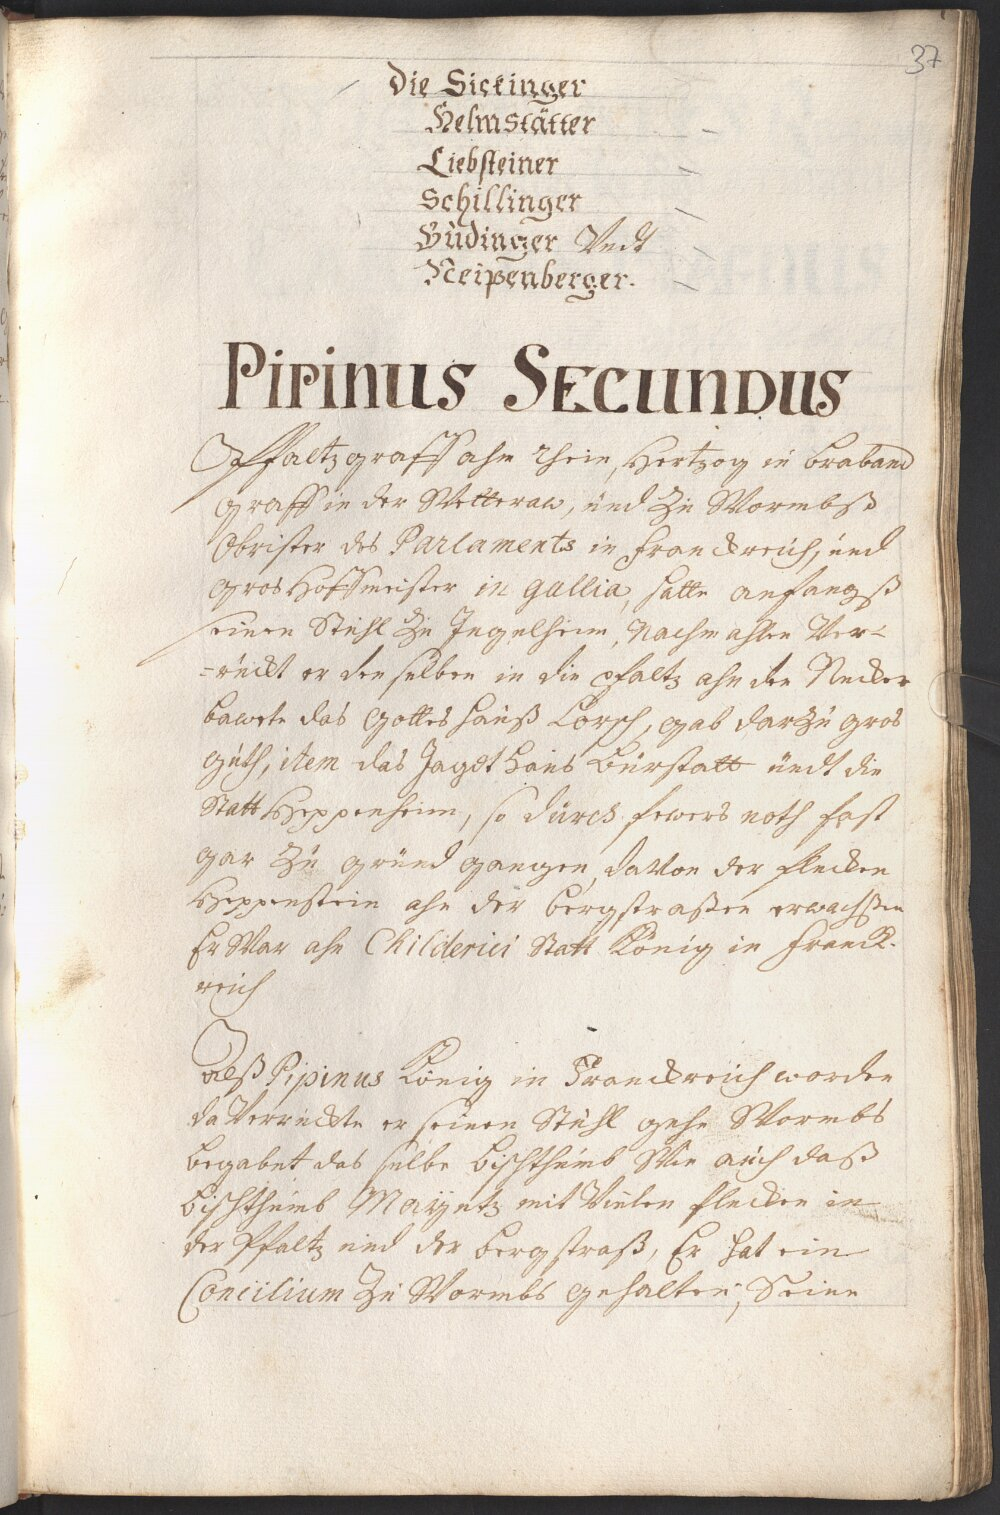 37
Die Sickinger
Helmstätter
Liebsteiner
Schillinger
Büdinger Vndt
Reipenberger.
PIPINUS SECUNDUS
Pfaltzgraff ahm Rhein, Hertzog in Braband
graff in der Wetteraw, und Zu Wormbß
Obrister des Parlaments in Franckreich, und
gros Hoffmeister in Gallia, hatte anfangß
seinen Stuhl Zu Ingelheim, Nachmahlen Ver-
=rückt er denselben in die Pfaltz ahn den Necker
bawete das Gottes hauß Lorsch, gab darzu gros
guth, item das Jagdt haus Bürstatt undt die
Statt Heppenheim, so durch fewers noth fast
gar Zu grund gangen, davon der flecken
Heppenstein ahn der bergstraßen erwachßen
Er War ahn Childerici Statt König in Franck-
reich
Alß Pipinus König in Franckreich worden
da Verruckte er seinen Stuhl gehn Wormbs
begabet das selbe Bischthumb Wie auch daß
Bischthumb Mayntz mit Vielen flecken in
der Pfaltz und der bergstraß, Er hat ein
Concilium Zu Wormbs gehalten, Seine